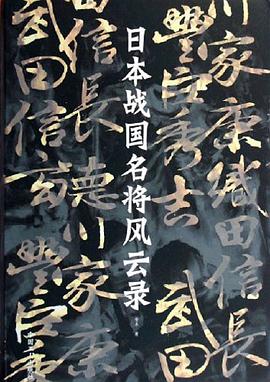 川家康織田信長
豐臣秀吉
武田
日本战国名将风云录
田信長
德川家康
武田信玄
豐臣秀